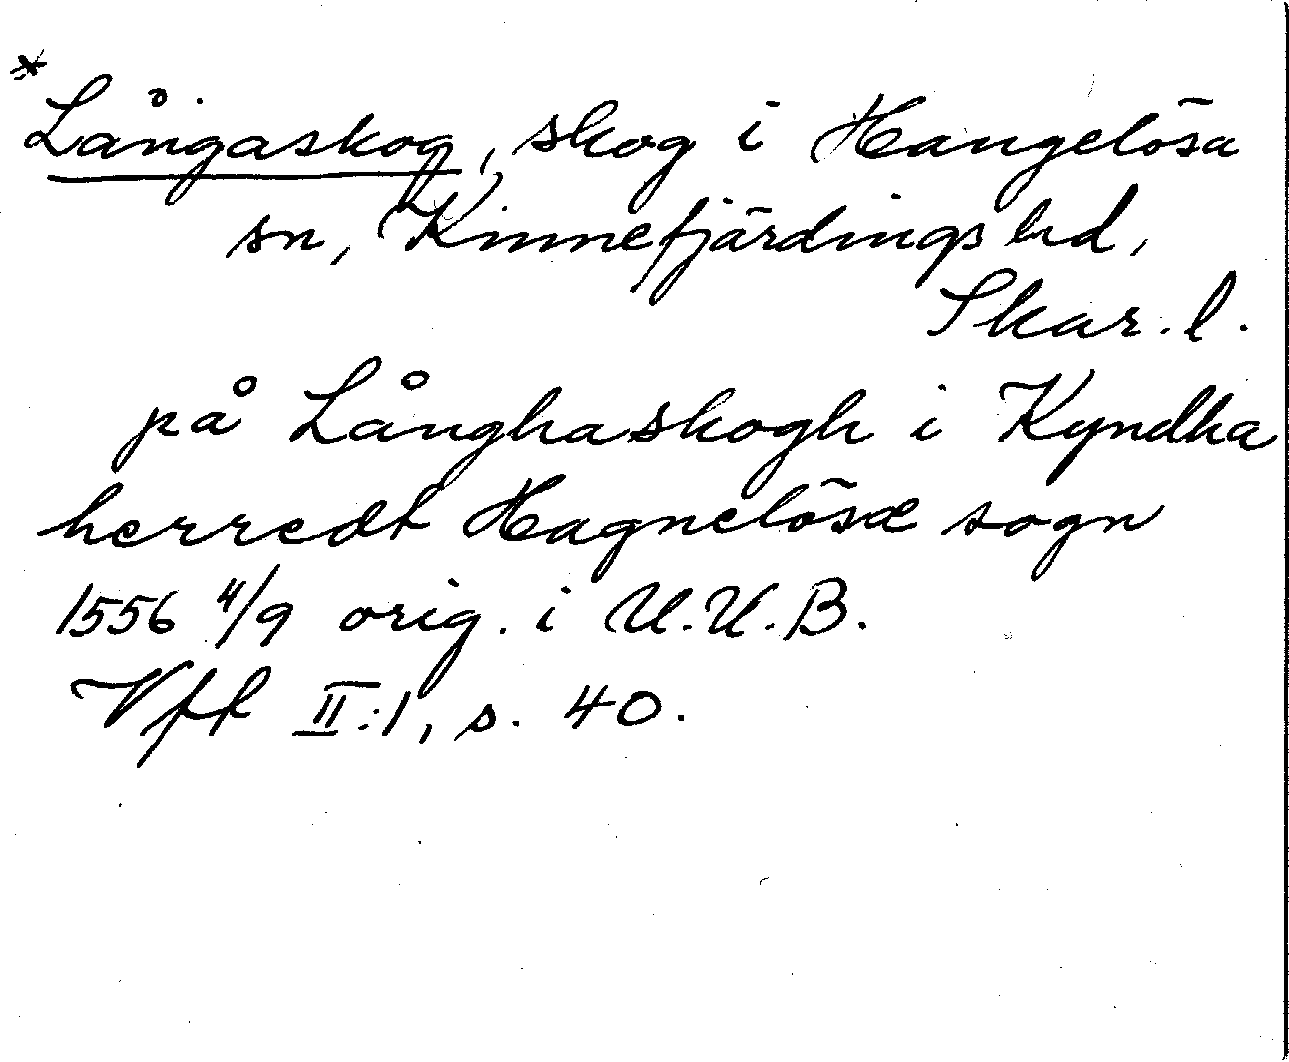 * Långaskog, skog i Hangelösa
sn, Kinnefjärdings hd,
Skar. l.
på Långhaskogh i Kyndha
herredt Hagnelösæ sogn
1556 4/9 orig. i U.U.B.
Vff II:1, s. 40.